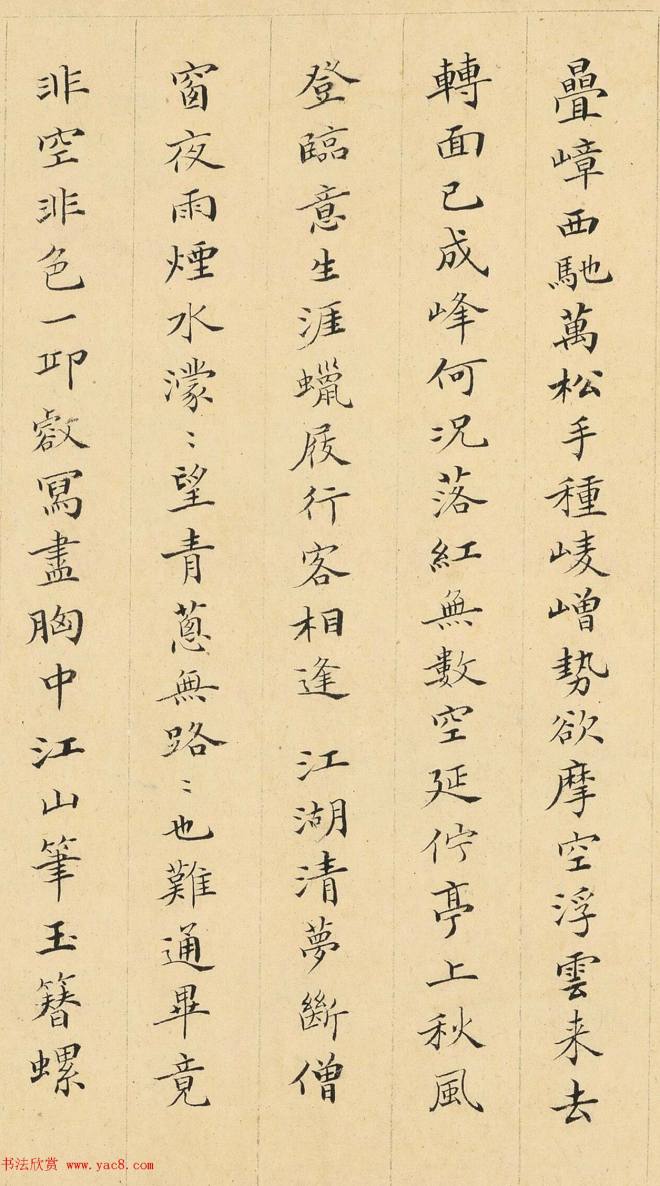 疊嶂西馳萬松手種崚嶒勢欲摩空浮雲来去
轉面已成峰何況落紅無數空延佇亭上秋風
登臨意生涯蠟屐行客相逢 江湖清夢斷僧
窗夜雨煙水濛〻望青蔥無路〻也難通畢竟
非空非色一卭㕡冩盡胸中江山筆玉簪螺
书法欣赏 www.yac8.com